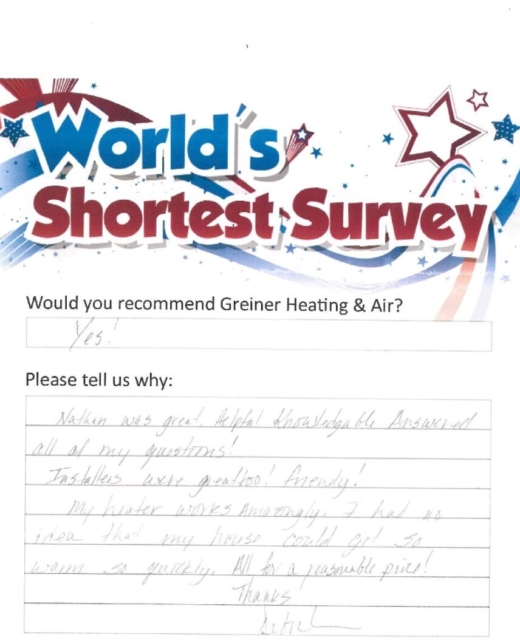 World's
Shortest Survey
Would you recommend Greiner Heating & Air?
Yes!
Please tell us why:
Nathan was great, Helpful Knowledgable Answered
all of my questions!
Installers were great too! friendly!
My heater works Amazingly. I had no
idea that my house could get so
warm so quickly. All for a reasonable price!
Thanks